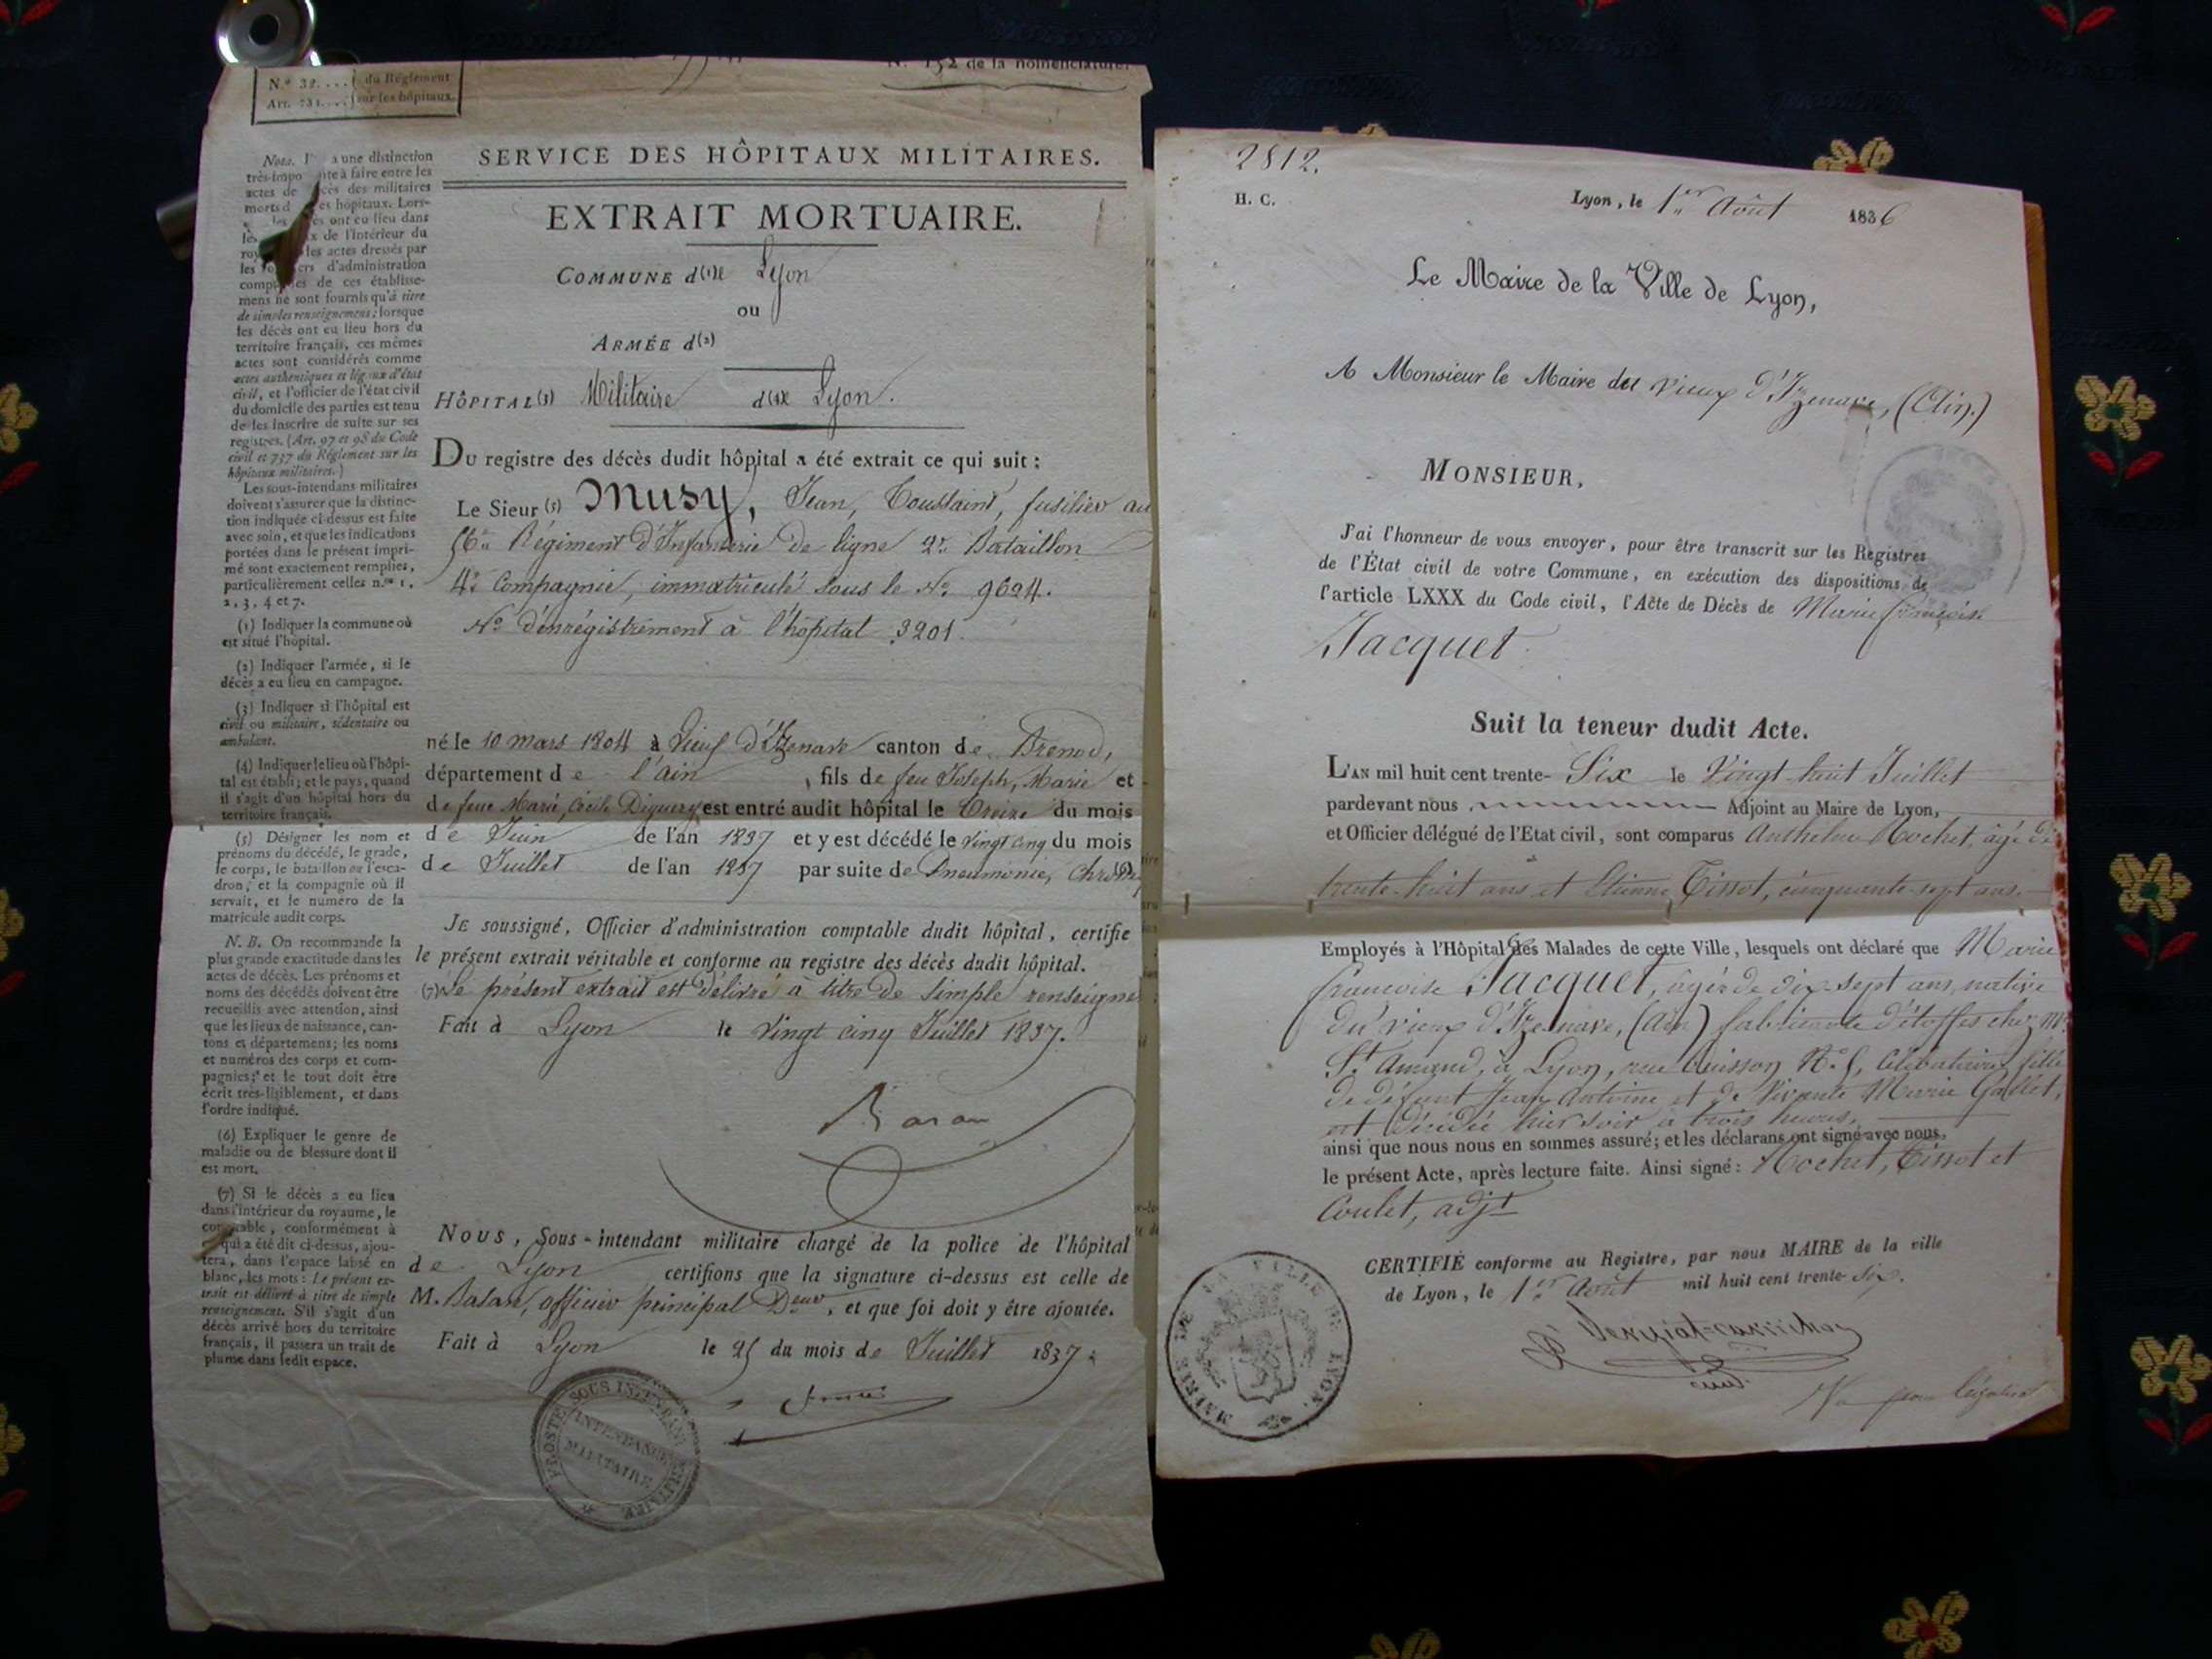 N.° 32.... du Réglement
Art. 731.... sur les hôpitaux.
N. 152 de la nomenclature.
Nota. a une distinction
très-impo nte à faire entre les
actes de cès des militaires
morts d es hôpitaux. Lors-
ont eu lieu dans
x de l'intérieur du
roy les actes dressés par
les d'administration
comptables de ces établisse-
mens ne sont fournis qu'à titre
de simples renseignemens; lorsque
les décès ont eu lieu hors du
territoire français, ces mêmes
actes sont considérés comme
actes authentiques et légaux d'état
civil, et l'officier de l'état civil
du domicile des parties est tenu
de les inscrire de suite sur ses
registres. (Art. 97 et 98 du Code
civil et 737 du Réglement sur les
hôpitaux militaires.)
Les sous-intendans militaires
doivent s'assurer que la distinc-
tion indiquée ci-dessus est faite
avec soin, et que les indications
portées dans le présent impri-
mé sont exactement remplies,
particulièrement celles n.os 1,
2, 3, 4 et 7.
(1) Indiquer la commune où
est situé l'hôpital.
(2) Indiquer l'armée, si le
décès a eu lieu en campagne.
(3) Indiquer si l'hôpital est
civil ou militaire, sédentaire ou
ambulant.
(4) Indiquer le lieu où l'hôpi-
tal est établi; et le pays, quand
il s'agit d'un hôpital hors du
territoire français.
(5) Désigner les nom et
prénoms du décédé, le grade,
le corps, le bataillon ou l'esca-
dron, et la compagnie où il
servait, et le numéro de la
matricule audit corps.
N. B. On recommande la
plus grande exactitude dans les
actes de décès. Les prénoms et
noms des décédés doivent être
recueillis avec attention, ainsi
que les lieux de naissance, can-
tons et départemens; les noms
et numéros des corps et com-
pagnies; et le tout doit être
écrit très-lisiblement, et dans
l'ordre indiqué.
(6) Expliquer le genre de
maladie ou de blessure dont il
est mort.
(7) Si le décès a eu lieu
dans l'intérieur du royaume, le
comptable, conformément à
qui a été dit ci-dessus, ajou-
tera, dans l'espace laissé en
blanc, les mots: Le présent ex-
trait est délivré à titre de simple
renseignement. S'il s'agit d'un
décès arrivé hors du territoire
français, il passera un trait de
plume dans ledit espace.
SERVICE DES HÔPITAUX MILITAIRES.
EXTRAIT MORTUAIRE.
COMMUNE d(1)e Lyon
ou
ARMÉE d(2)
HÔPITAL(3) Militaire d(4)e Lyon.
DU registre des décès dudit hôpital a été extrait ce qui suit:
Le Sieur (5) Musy, Jean, Toussaint, fusilier au
56e Régiment d'Infanterie de ligne 2e Bataillon
4e Compagnie, immatriculé sous le No 9624.
No d'enrégistrement à l'hôpital 3201.
né le 10 mars 1804 à Vieux d'Izenave canton de Brenod,
département de l'ain, fils de feu Joseph, Marie et
de feue Marie, Cécile est entré audit hôpital le Treize du mois
de Juin de l'an 1837 et y est décédé le vingt cinq du mois
de Juillet de l'an 1837 par suite de Pneumonie,
JE soussigné, Officier d'administration comptable dudit hôpital, certifie
le présent extrait véritable et conforme au registre des décès dudit hôpital.
(7) Le présent extrait est délivré à titre de simple renseigne
Fait à Lyon le Vingt cinq Juillet 1837.
NOUS, Sous-intendant militaire chargé de la police de l'hôpital
de Lyon certifions que la signature ci-dessus est celle de
M. officier principal, et que foi doit y être ajoutée.
Fait à Lyon le 25 du mois de Juillet 1837.
SOUS INTENDANT MILITAIRE
INTENDANCE
MILITAIRE
2812.
H. C.
Lyon, le 1er Août 1836
Le Maire de la Ville de Lyon,
A Monsieur le Maire du vieux d'Izenave, (Ain.)
MONSIEUR,
J'ai l'honneur de vous envoyer, pour être transcrit sur les Registres
de l'État civil de votre Commune, en exécution des dispositions de
l'article LXXX du Code civil, l'Acte de Décès de Marie françoise
Jacquet.
Suit la teneur dudit Acte.
L'AN mil huit cent trente-Six le Vingt huit Juillet
pardevant nous Adjoint au Maire de Lyon,
et Officier délégué de l'Etat civil, sont comparus Anthelme Rochet, âgé de
trente-huit ans et Etienne Tissot, cinquante-sept ans.
Employés à l'Hôpital des Malades de cette Ville, lesquels ont déclaré que Marie
francoise Jacquet, agée de dix-sept ans, native
du vieux d'Izenave, (Ain) fabricante d'étoffes chez Mr
St Amand, à Lyon, rue Buisson No 5, Célibataire, fille
de défunt Jean Antoine et de vivante Marie Gallet,
est décédée hier soir à trois heures,
ainsi que nous nous en sommes assuré; et les déclarans ont signé avec nous,
le présent Acte, après lecture faite. Ainsi signé: Rochet, Tissot et
Coulet, adjt
CERTIFIÉ conforme au Registre, par nous MAIRE de la ville
de Lyon, le 1er Août mil huit cent trente-six.
MAIRIE DE LA VILLE DE LYON.